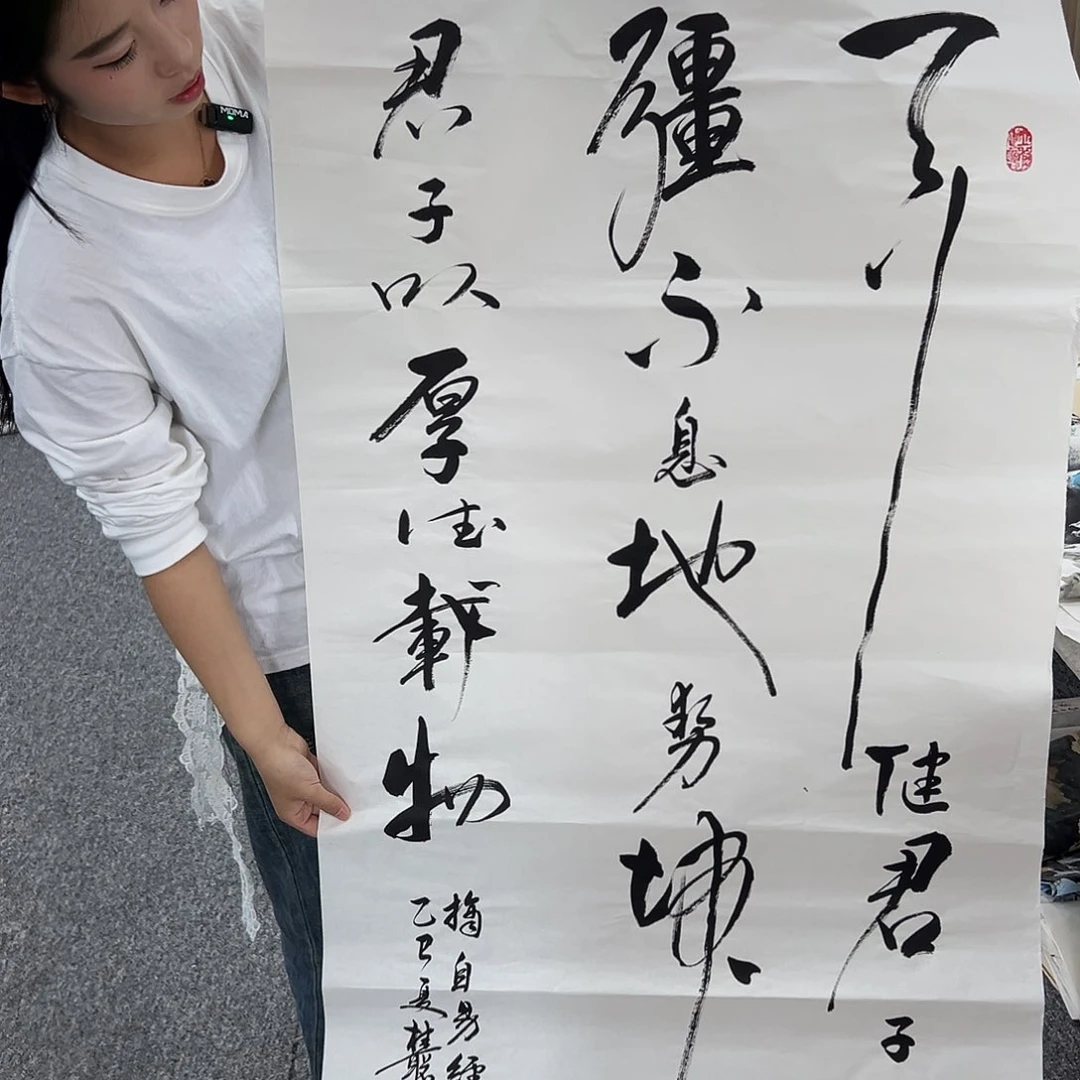 天行健君子
彊不息地势坤
君子以厚德載物
摘自易經
乙巳夏桂
MOMA